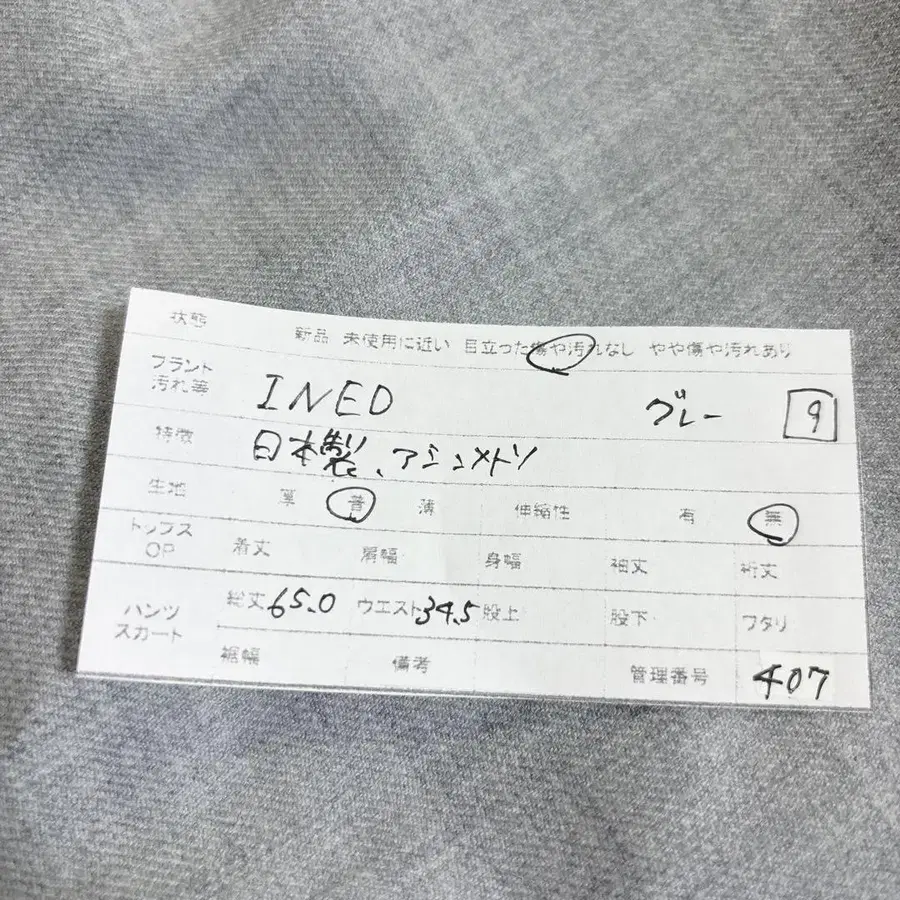 状態 新品 未使用に近い 目立った傷や汚れなし やや傷や汚れあり
ブランド 汚れ等 INED グレー 9
特徴 日本製、アシンメトリ
生地 厚 普 薄 伸縮性 有 無
トップス OP 着丈 肩幅 身幅 袖丈 裄丈
パンツ スカート 総丈65.0 ウエスト34.5 股上 股下 ワタリ
裾幅 備考 管理番号 407